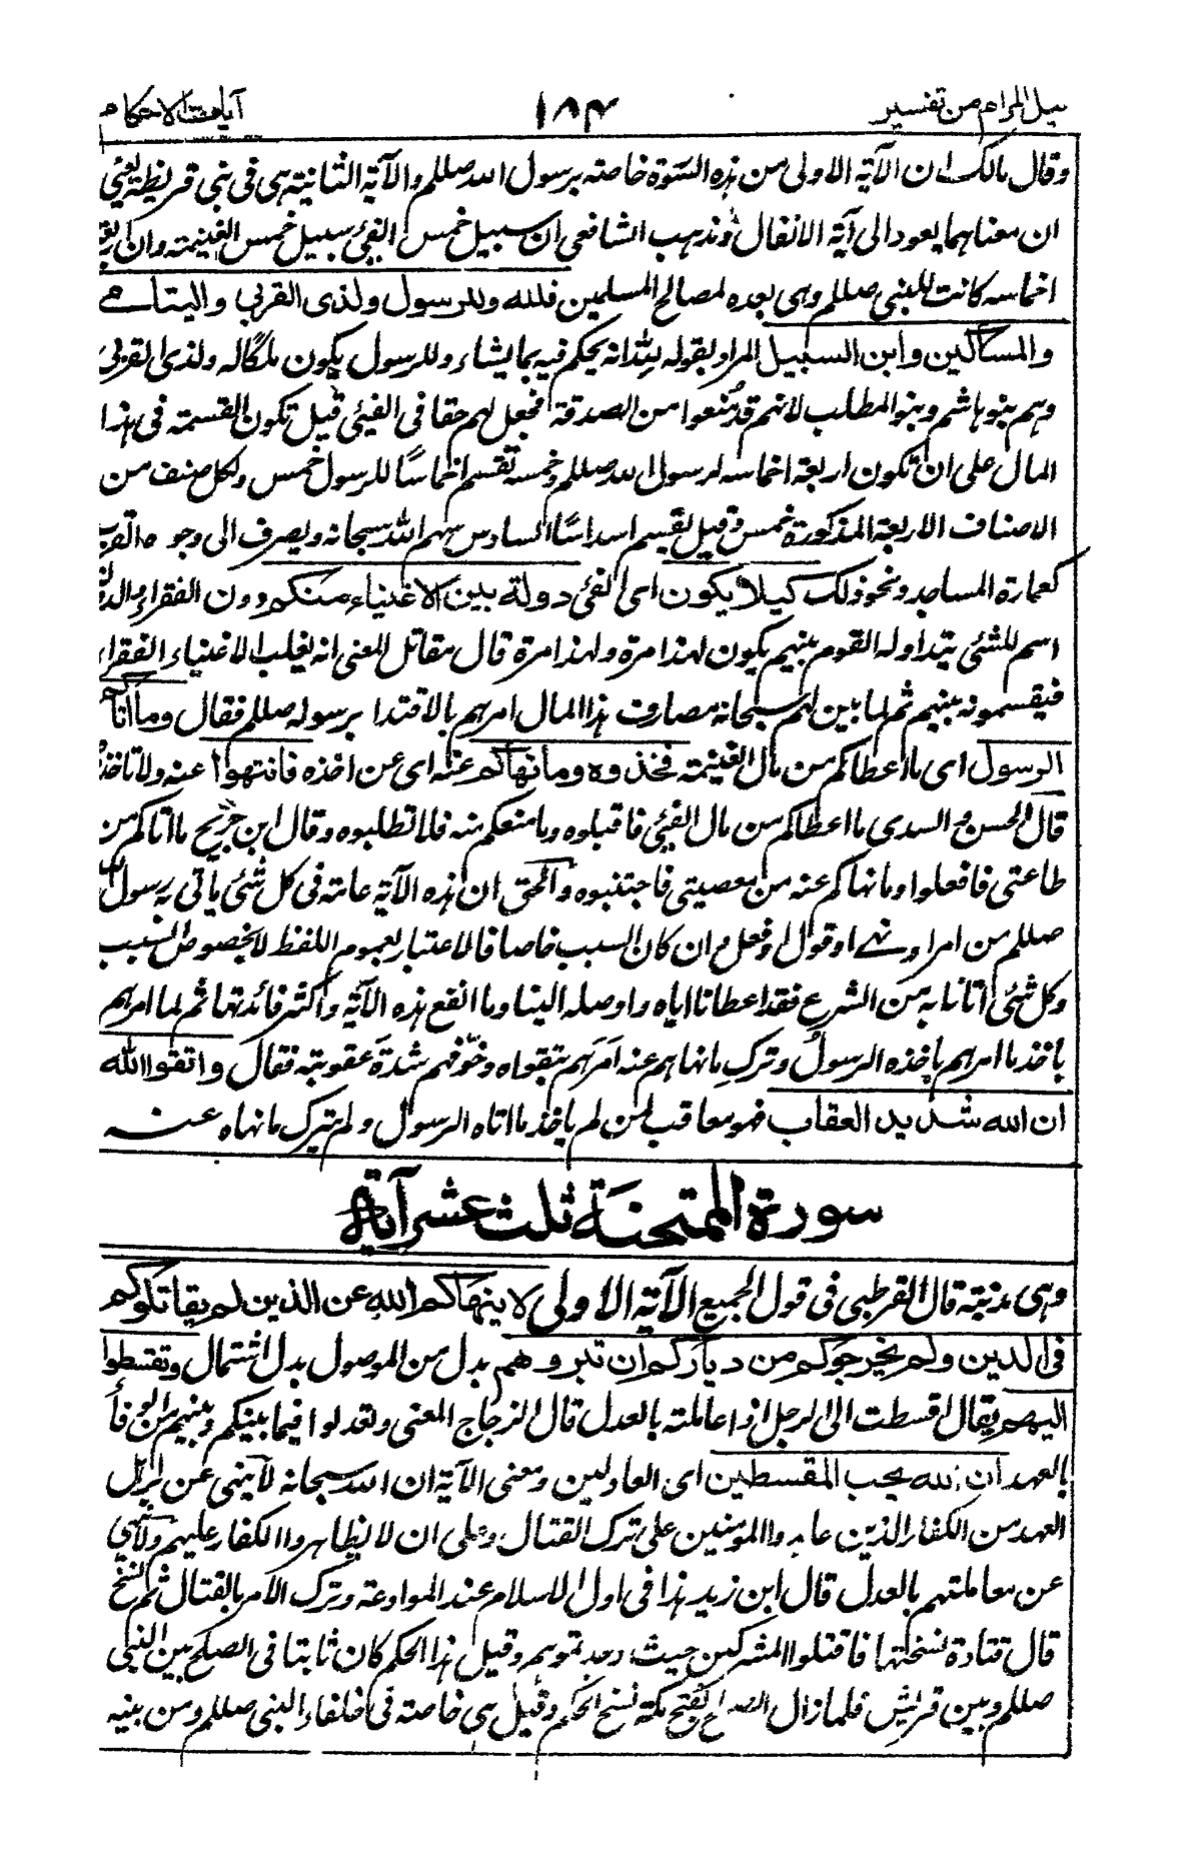 نيل المرام من تفسير ١٨٤ آيات الاحكام
وقال مالك ان الآية الاولى من هذه السورة خاصة برسول الله صللم والآية الثانية هى فى بنى قريظة يعنى
ان معناهما يعود الى آية الانفال وذهب الشافعى ان سبيل خمس الفيئ سبيل خمس الغنيمة وان اربعة
اخماسه كانت للنبى صللم وهى بعده لمصالح المسلمين فلله وللرسول ولذى القربى واليتامى
والمساكين وابن السبيل المراد بقوله لله انه يحكم فيه بما يشاء وللرسول يكون ملكا له ولذى القربى
وهم بنو هاشم وبنو المطلب لانهم قد منعوا من الصدقة فجعل لهم حقا فى الفيئ قيل تكون القسمة فى هذا
المال على ان تكون اربعة اخماسه لرسول الله صللم وخمسه تقسم اخماسًا للرسول خمس ولكل صنف من
الاصناف الاربعة المذكورة خمس وقيل يقسم اسداسًا السادس سهم الله سبحانه ويصرف الى وجوه القرب
كعمارة المساجد ونحو ذلك كيلا يكون اى الفئ دولة بين الاغنياء منكم دون الفقراء والدولة
اسم للشئ يتداوله القوم بينهم يكون لهذا مرة ولهذا مرة قال مقاتل المعنى انه يغلب الاغنياء الفقراء
فيقسمونه بينهم ثم لما بين لهم سبحانه مصارف هذا المال امرهم بالاقتدا برسوله صللم فقال وما آتاكم
الرسول اى ما اعطاكم من مال الغنيمة فخذوه وما نهاكم عنه اى عن اخذه فانتهوا عنه ولا تاخذوه
قال الحسن والسدى ما اعطاكم من مال الفيئ فاقبلوه وما منعكم منه فلا تطلبوه وقال ابن جريج ما اتاكم من
طاعتى فافعلوا وما نهاكم عنه من معصيتى فاجتنبوه والحق ان هذه الآية عامة فى كل شئ ياتى به رسول الله
صللم من امر او نهى او قول او فعل وان كان السبب خاصا فالاعتبار بعموم اللفظ لا بخصوص السبب
وكل شئ اتانا به من الشرع فقد اعطانا اياه واوصله الينا وما انفع هذه الآية واكثر فائدتها ثم لما امرهم
باخذ ما امرهم باخذه الرسول وترك ما نهاهم عنه امرهم بتقواه وخوّفهم شدة عقوبته فقال واتقوا الله
ان الله شديد العقاب فهو معاقب لمن لم ياخذ ما اتاه الرسول ولم يترك ما نهاه عنه
سورة الممتحنة ثلث عشر آية
وهى مدنية قال القرطبى فى قول الجميع الآية الاولى لا ينهاكم الله عن الذين لم يقاتلوكم
فى الدين ولم يخرجوكم من دياركم ان تبروهم بدل من الموصول بدل اشتمال وتقسطوا
اليهم يقال اقسطت الى الرجل اذا عاملته بالعدل قال الزجاج المعنى وتعدلوا فيما بينكم وبينهم من الوفأ
بالعهد ان الله يحب المقسطين اى العادلين ومعنى الآية ان الله سبحانه لا ينهى عن بر اهل
العهد من الكفار الذين عاهدوا المؤمنين على ترك القتال وعلى ان لا يظاهروا الكفار عليهم ولا ينهى
عن معاملتهم بالعدل قال ابن زيد هذا فى اول الاسلام عند الموادعة وترك الامر بالقتال ثم نسخ
قال قتادة نسختها فاقتلوا المشركين حيث وجدتموهم وقيل هذا الحكم كان ثابتا فى الصلح بين النبى
صللم وبين قريش فلما زال الصلح بفتح مكة نسخ الحكم وقيل هى خاصة فى خلفاء النبى صللم ومن بينه